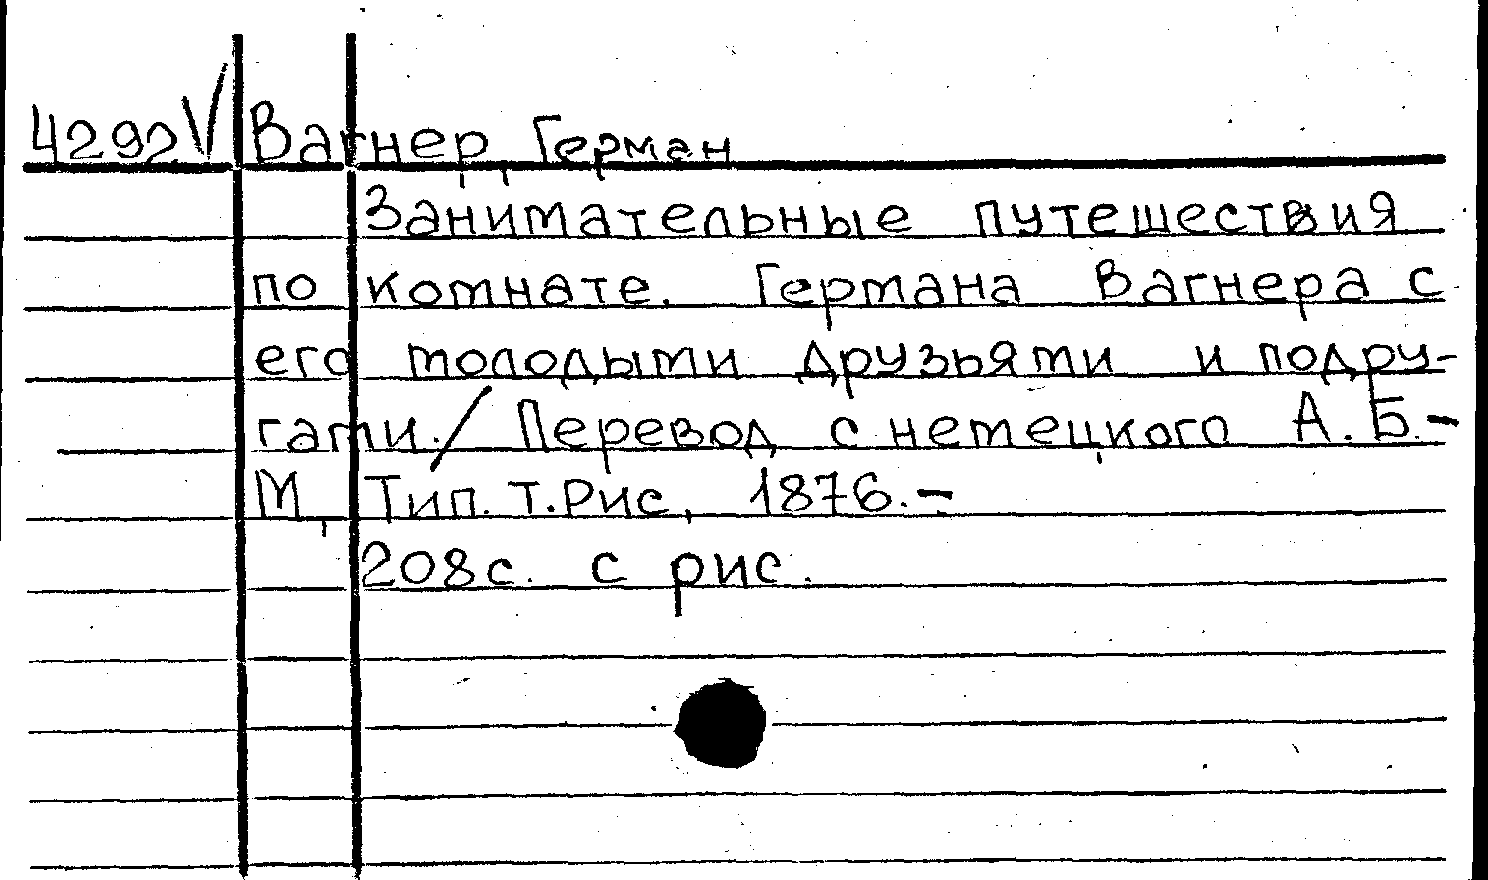 4292V Вагнер, Герман
Занимательные путешествия
по комнате. Германа Вагнера с
его молодыми друзьями и подру-
гами./ Перевод с немецкого А. Б.-
М, Тип. Т.Рис, 1876.-
208с. с рис.